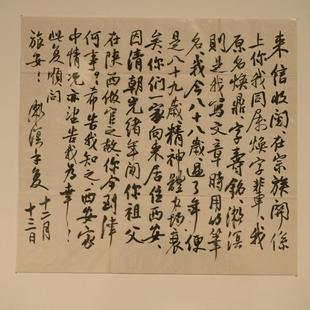 来信收阅、在宗族关系
上你我同属焕字辈、我
原名焕鼎、字寿铭、漱溟
则是我写文章时用的笔
名、我今八十八岁过了年便
是八十九岁精神体力均衰
矣、你们家向来居住西安、
因清朝光绪年间你祖父
在陕西做官之故你今到津
何事？希告我知之、西安家
中情况亦望告我为幸！
此复顺问
旅安！ 漱溟手复
十二月
十三日